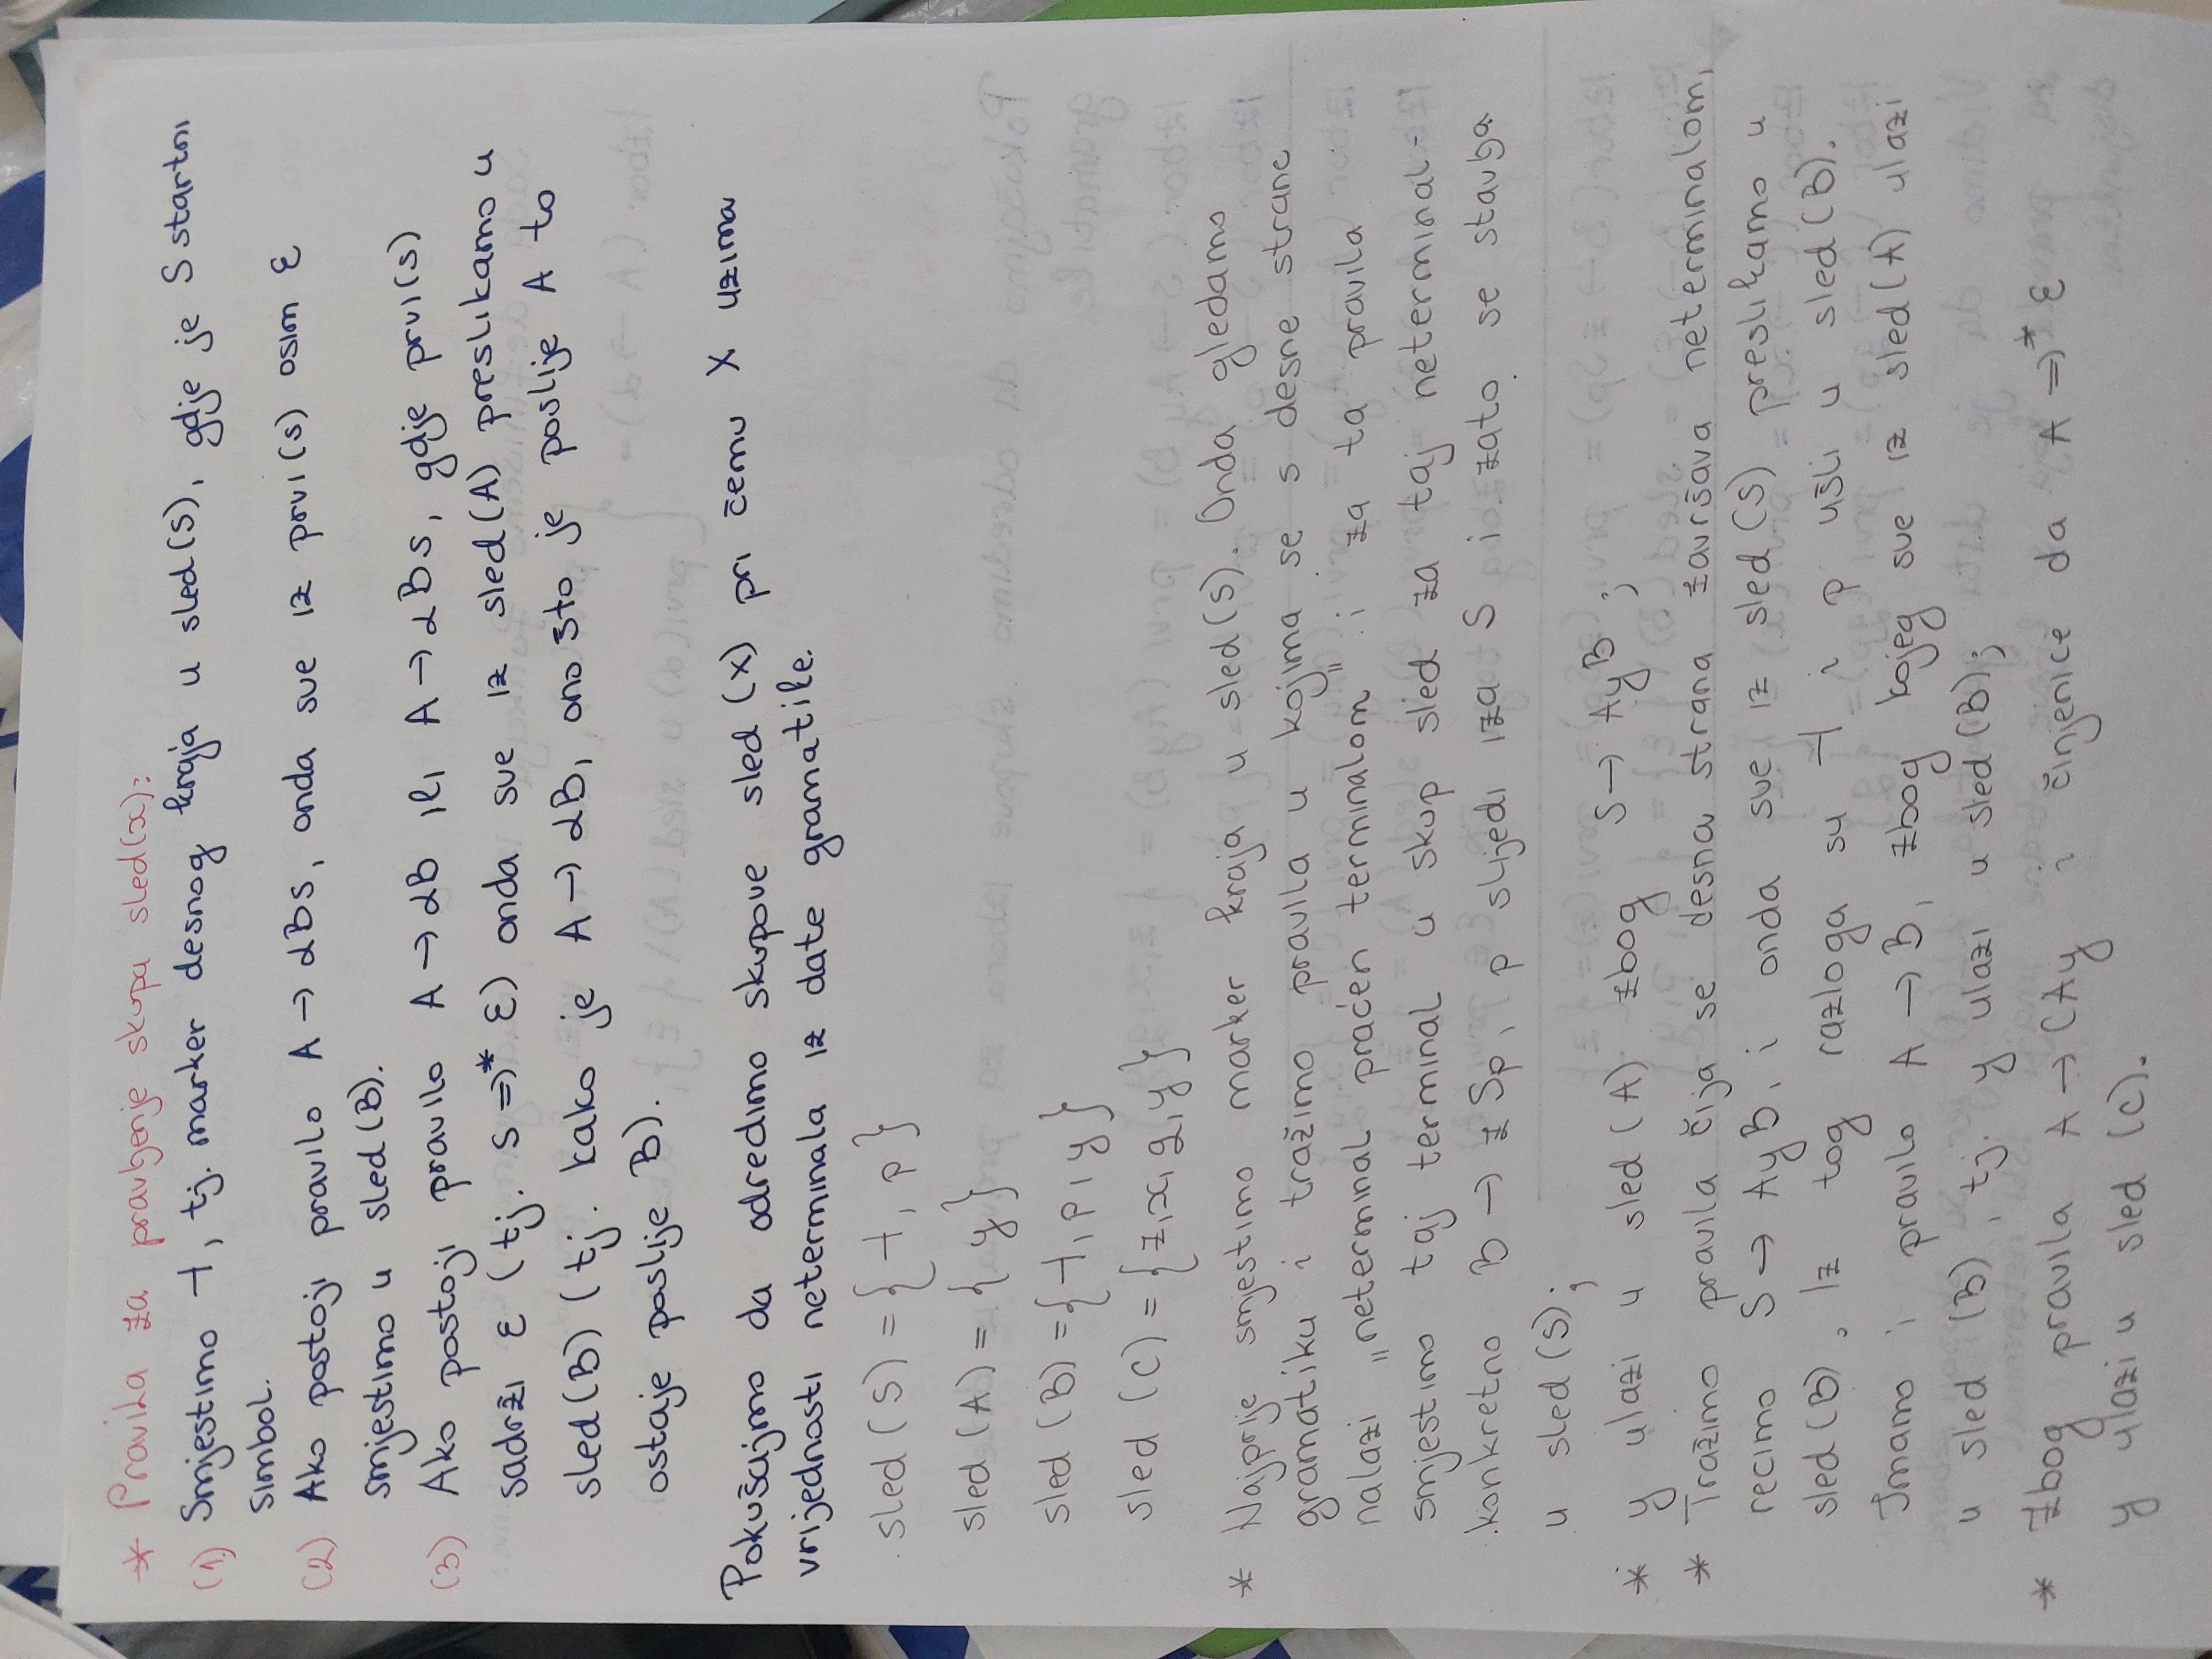 * Pravila za pravljenje skupa sled(x):
(1) Smjestimo ⊣, tj. marker desnog kraja u sled(S), gdje je S startni
simbol.
(2) Ako postoji pravilo A → αBs, onda sve iz prvi(s) osim ε
smjestimo u sled(B).
(3) Ako postoji pravilo A → αB ili A → αBs, gdje prvi(s)
sadrži ε (tj. s ⇒* ε) onda sve iz sled(A) preslikamo u
sled(B) (tj. kako je A → αB, ono što je poslije A to
ostaje poslije B).
Pokušajmo da odredimo skupove sled(X) pri čemu X uzima
vrijednosti neterminala iz date gramatike.
sled(S) = {⊣, p}
sled(A) = {y}
sled(B) = {⊣, p, y}
sled(C) = {z, x, q, y}
* Najprije smjestimo marker kraja u sled(S). Onda gledamo
gramatiku i tražimo pravila u kojima se s desne strane
nalazi „neterminal praćen terminalom" i za ta pravila
smjestimo taj terminal u skup sled za taj neterminal -
konkretno B → zSp, p slijedi iza S i zato se stavlja
u sled(S);
* y ulazi u sled(A) zbog S → AyB ;
* Tražimo pravila čija se desna strana završava neterminalom,
recimo S → AyB, i onda sve iz sled(S) preslikamo u
sled(B). Iz tog razloga su ⊣ i p ušli u sled(B).
Imamo i pravilo A → B, zbog kojeg sve iz sled(A) ulazi
u sled (B), tj. y ulazi u sled(B);
* Zbog pravila A → CAy i činjenice da A ⇒* ε
y ulazi u sled (C).